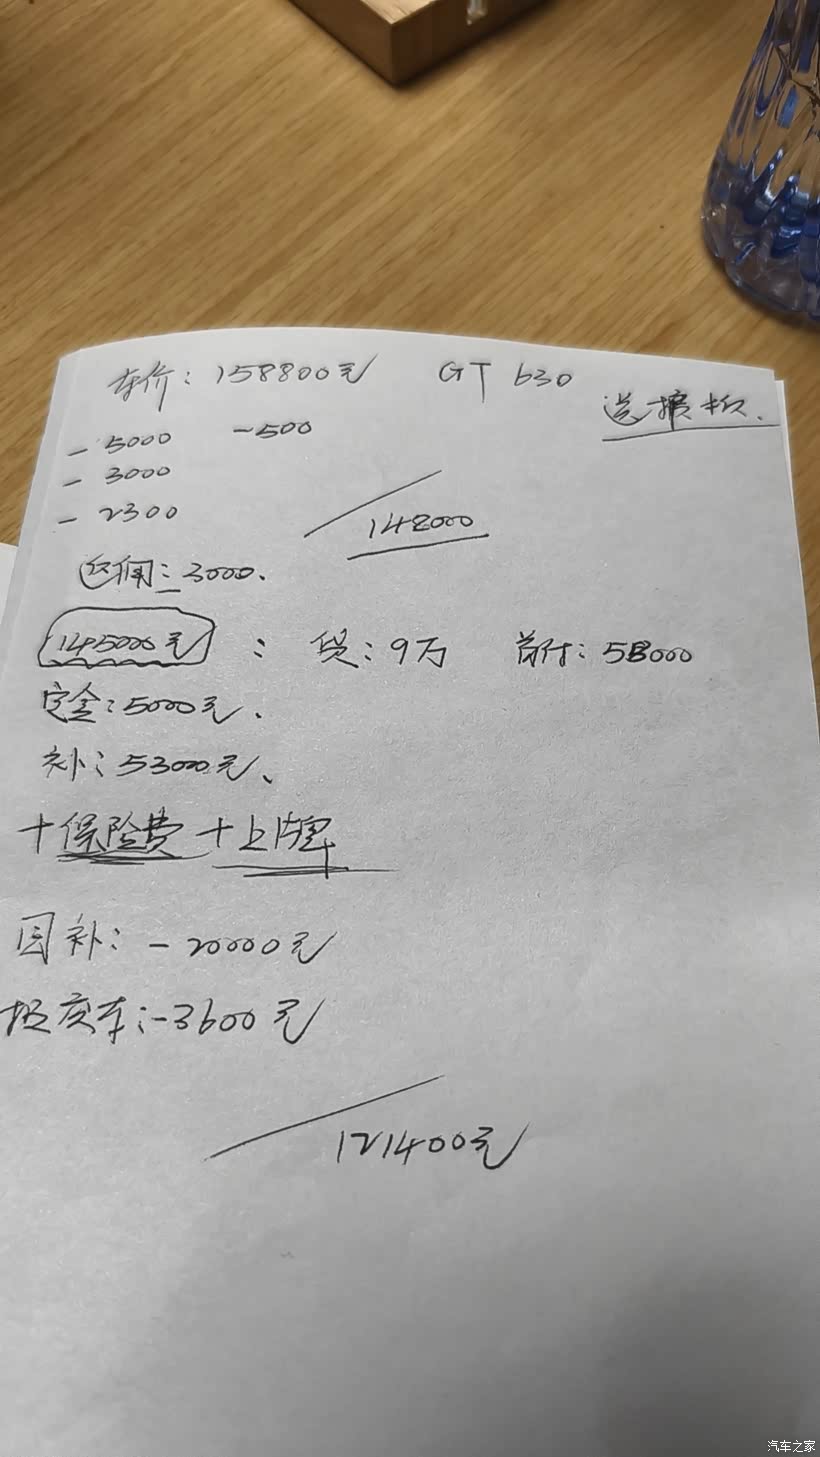 车价：158800元 GT 630
送擋板.
- 5000 -500
- 3000
- 2300
148000
返佣：3000.
145000元： 贷：9万 首付：58000
定金：5000元.
补：53000元、
+保险费+上牌
国补：-20000元
报废车：-3600元
121400元
汽车之家